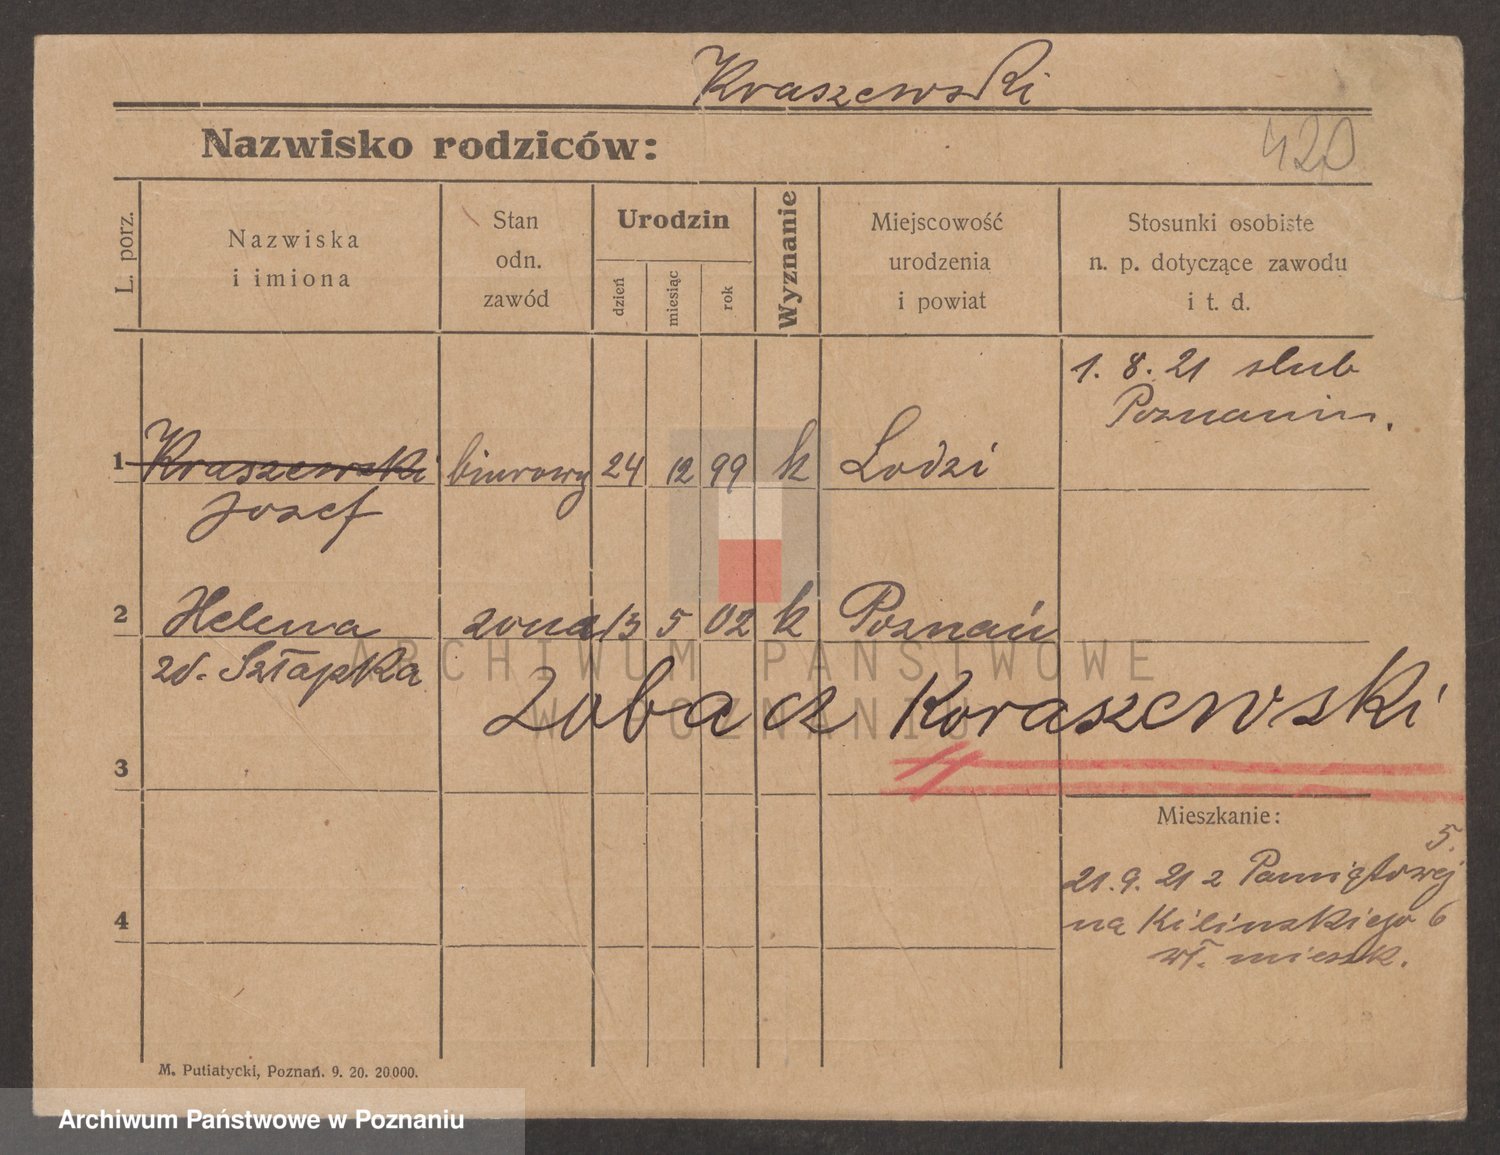 Kraszewski
Nazwisko rodziców:
420
L. porz.
Nazwiska
i imiona
Stan
odn.
zawód
Urodzin
dzień
miesiąc
rok
Wyznanie
Miejscowość
urodzenia
i powiat
Stosunki osobiste
n. p. dotyczące zawodu
i t. d.
1. 8. 21 slub
Poznaniu.
1 Kraszewski biurowy 24 12 99 k Lodzi
Jozef
2 Helena zona 13 5 02 k Poznań
zd. Szłapka
ARCHIWUM PAŃSTWOWE
W POZNANIU
Zobacz Koraszewski
3
Mieszkanie:
5.
21. 9. 21 z Pamiątowej
na Kilinskiego 6
wł. mieszk.
4
M. Putiatycki, Poznań. 9. 20. 20.000.
Archiwum Państwowe w Poznaniu